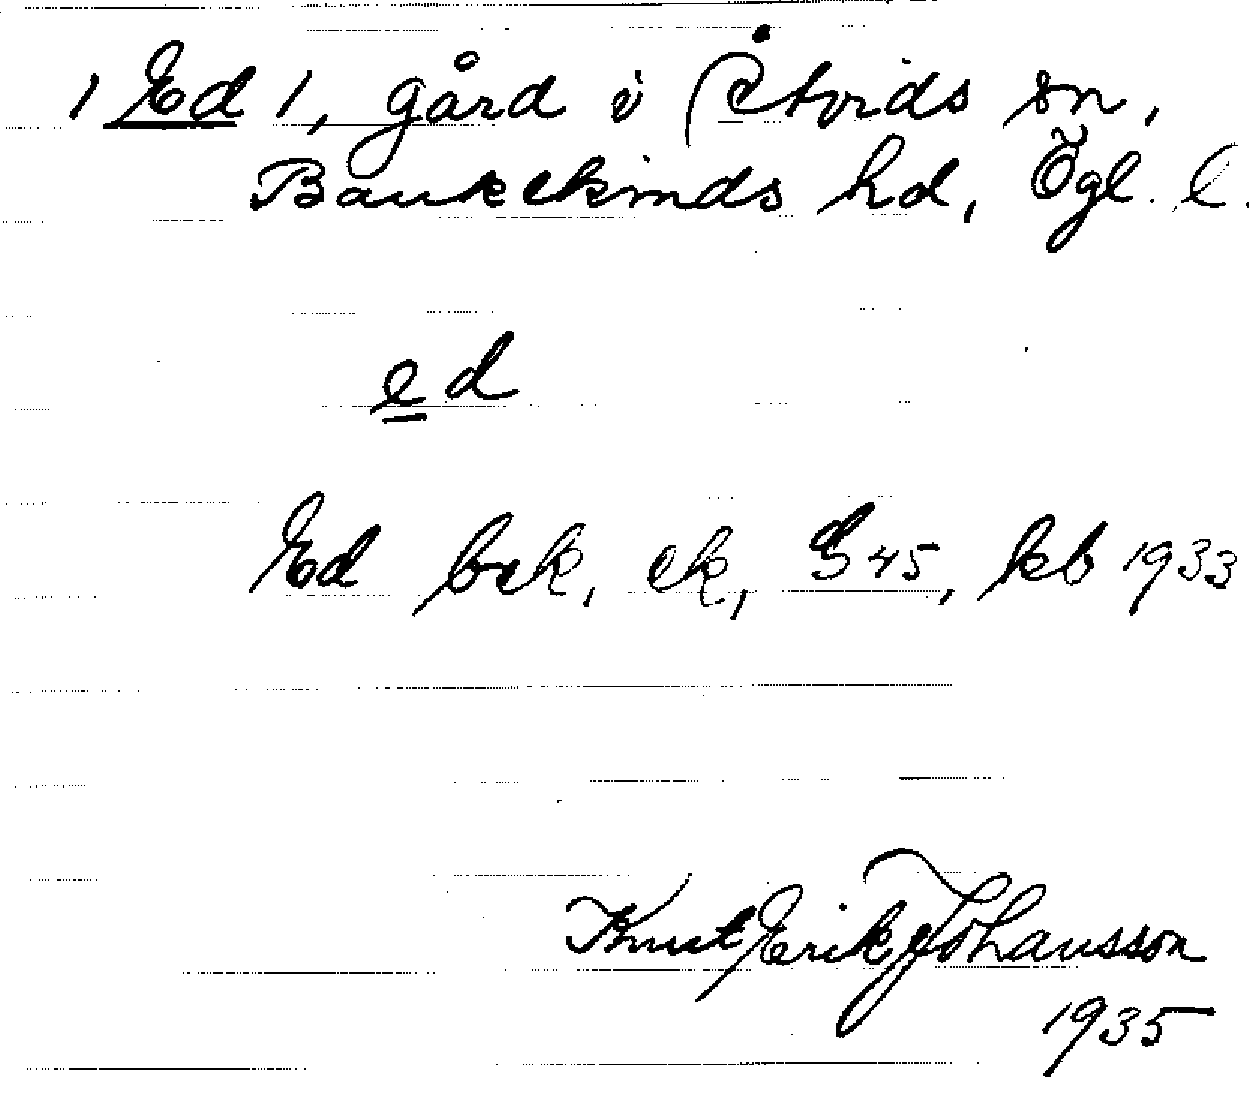 1 Ed 1, gård i Åtvids sn,
Bankekinds hd, Ögl. l.
ed
Ed bek, ek, G 45, kb 1933
Knut Erik Johansson
1935